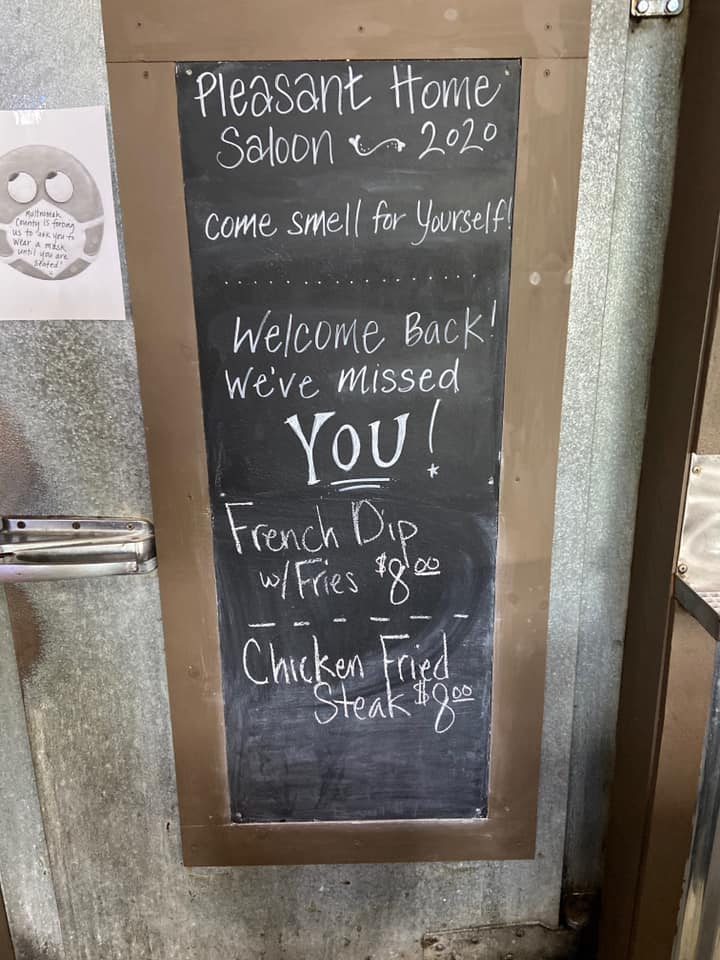 Pleasant Home
Saloon 2020
come smell for Yourself!
Welcome Back!
We've missed
YOU!
French Dip
w/Fries $8.00
Chicken Fried
Steak $8.00
Multnomah
County is forcing
us to "ask you to
wear a mask
until you are
seated."